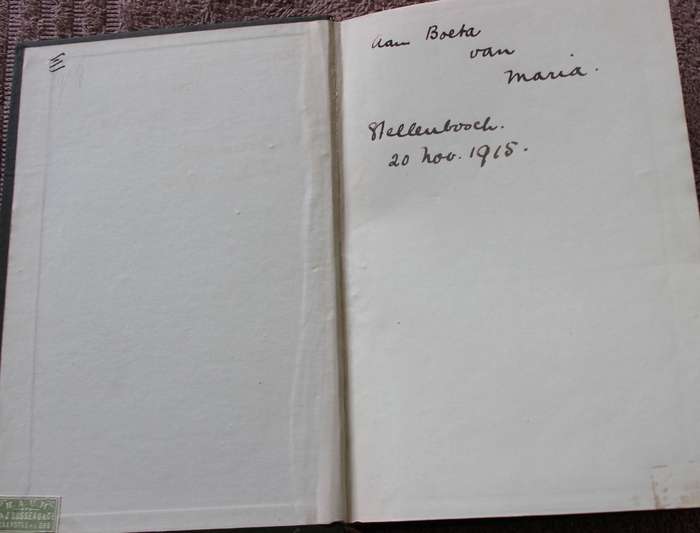 Aan Boeta
van
Maria.
Stellenbosch.
20 Nov. 1915.